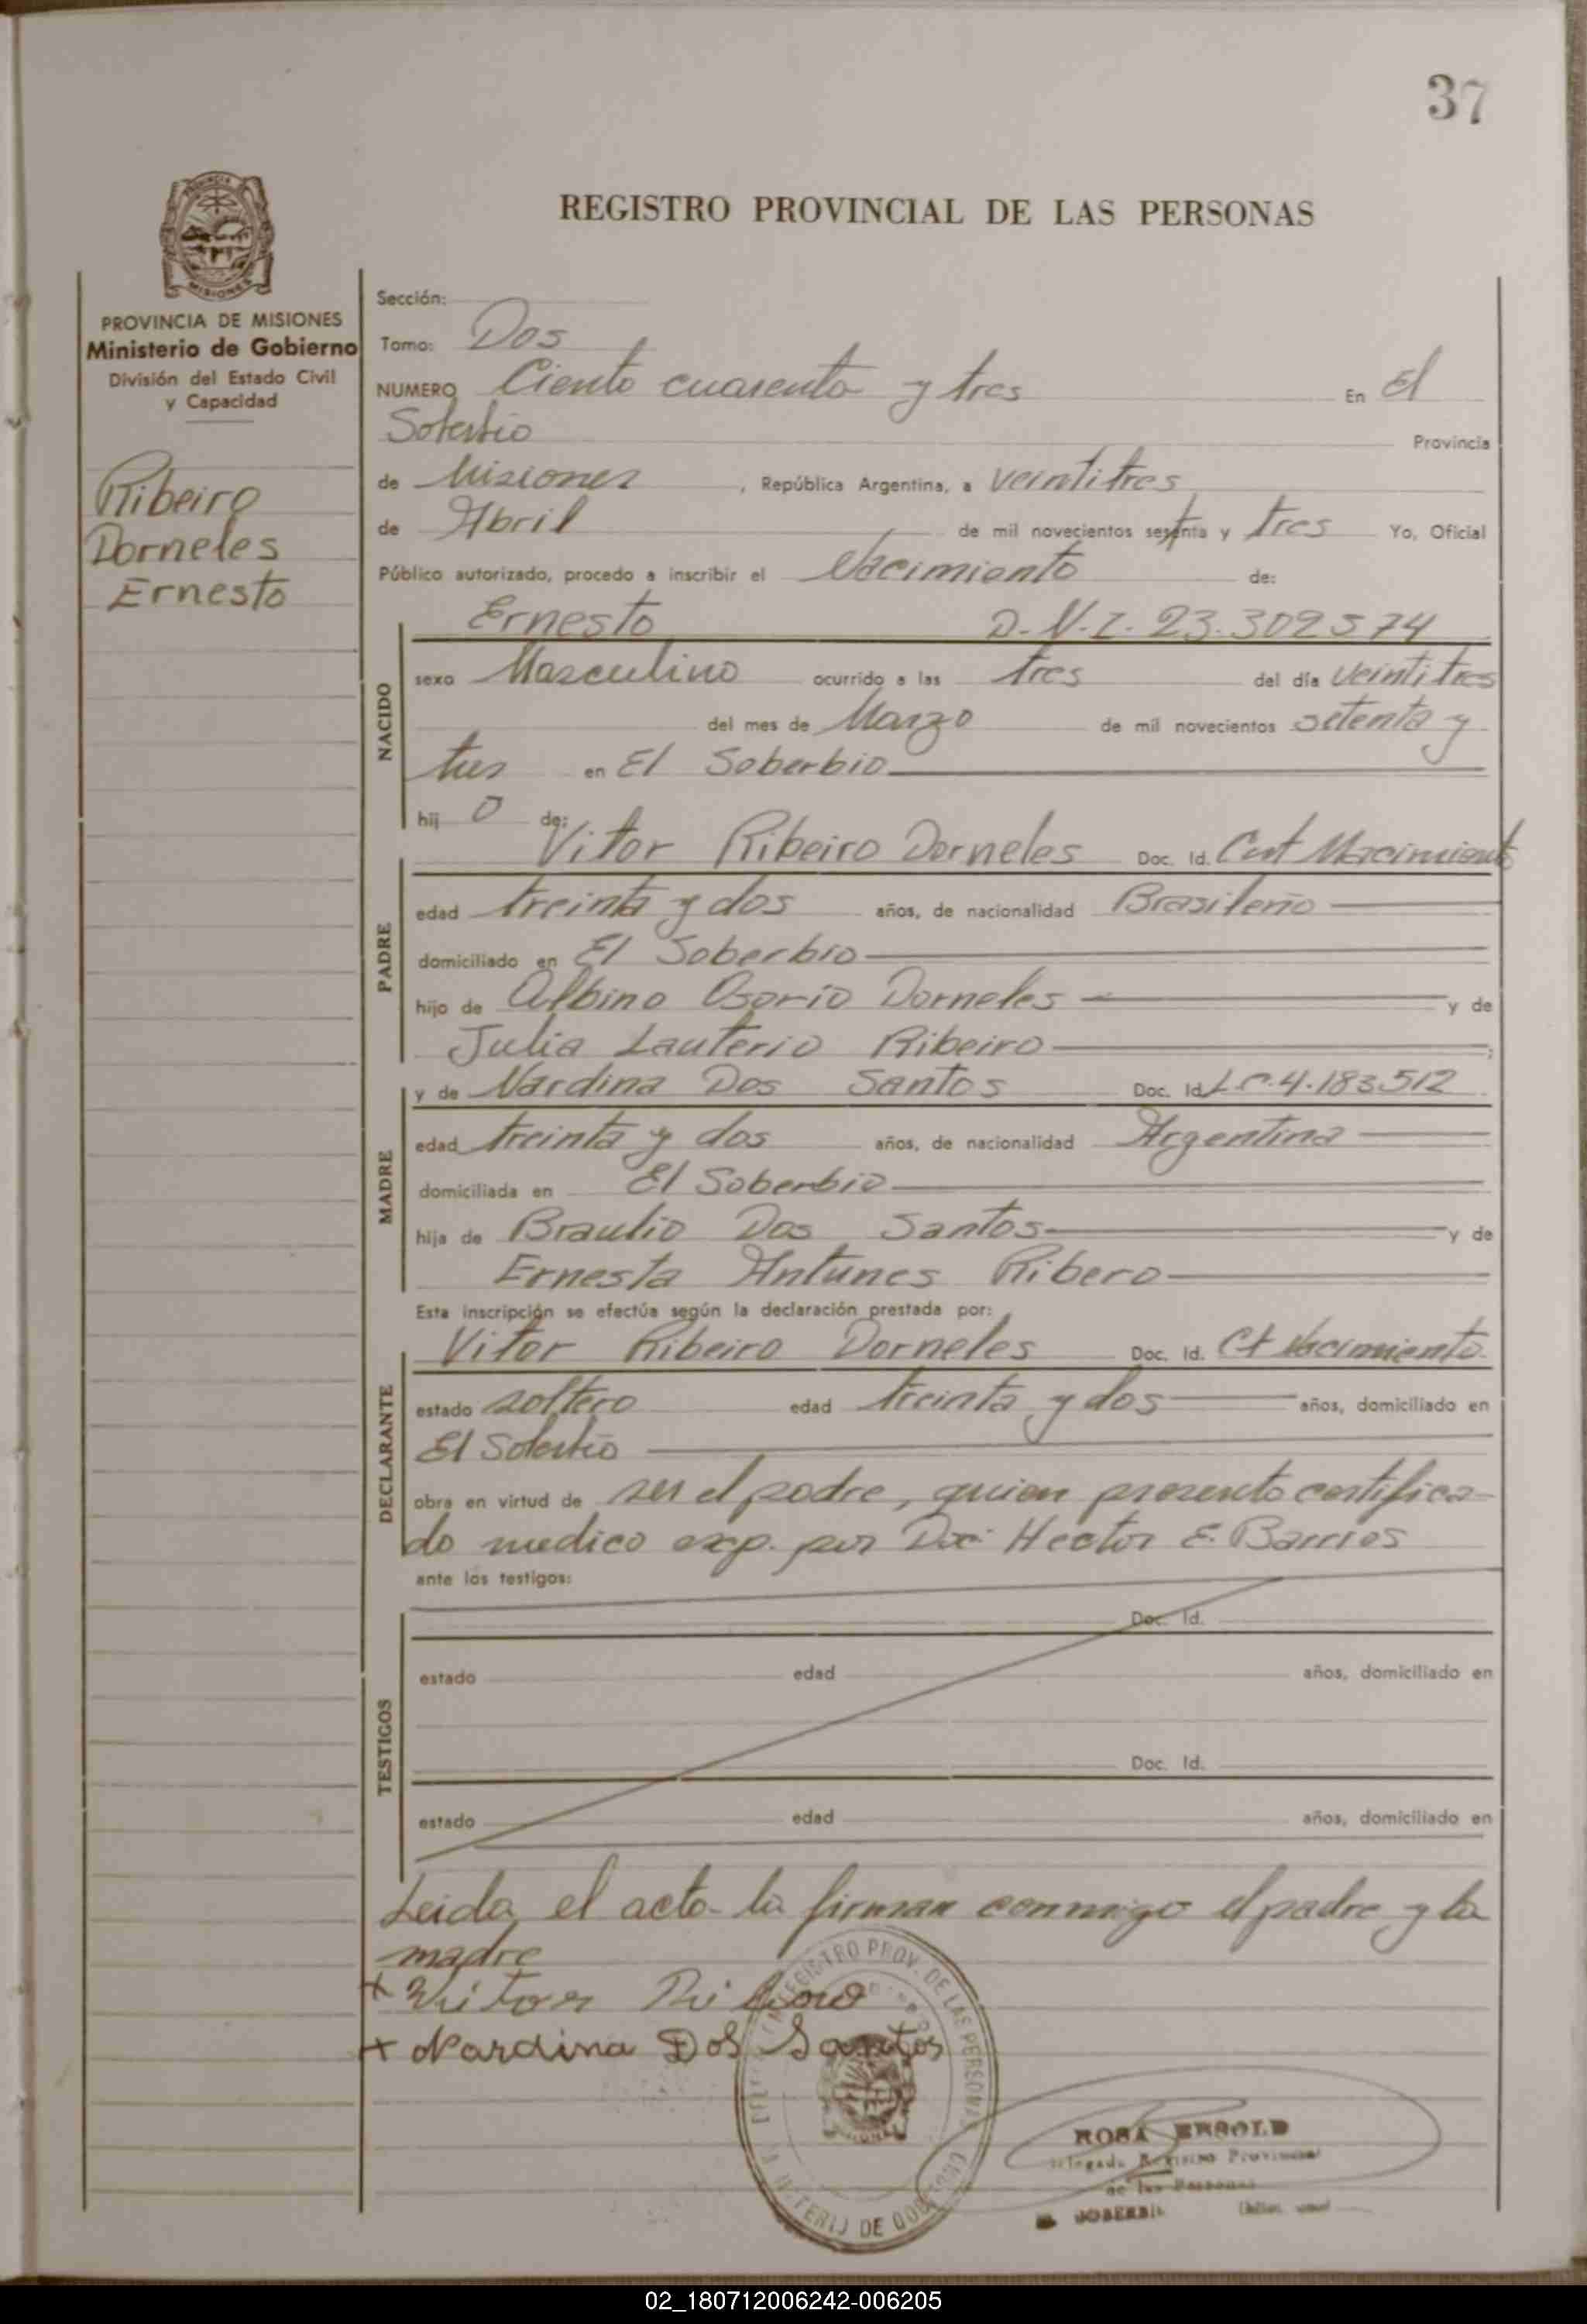 37
REGISTRO PROVINCIAL DE LAS PERSONAS
PROVINCIA DE MISIONES
Ministerio de Gobierno
División del Estado Civil
y Capacidad
Ribeiro
Dorneles
Ernesto
Sección:
Tomo: Dos
NUMERO Ciento cuarenta y tres En El
Soberbio Provincia
de Misiones, República Argentina, a veintitres
de Abril de mil novecientos setenta y tres Yo, Oficial
Público autorizado, procedo a inscribir el Nacimiento de:
Ernesto D.N.I. 23.302574
NACIDO
sexo Masculino ocurrido a las tres del día veintitres
del mes de Marzo de mil novecientos setenta y
tres en El Soberbio
hij o de:
Vitor Ribeiro Dorneles Doc. Id. Cert Nacimiento
PADRE
edad treinta y dos años, de nacionalidad Brasileño
domiciliado en El Soberbio
hijo de Albino Osorio Dorneles y de
Julia Lauterio Ribeiro;
y de Nardina Dos Santos Doc. Id L.C. 4.183.512
MADRE
edad treinta y dos años, de nacionalidad Argentina
domiciliada en El Soberbio
hija de Braulio Dos Santos y de
Ernesta Antunes Ribero
Esta inscripción se efectúa según la declaración prestada por:
Vitor Ribeiro Dorneles Doc. Id. Ct Nacimiento
DECLARANTE
estado soltero edad treinta y dos años, domiciliado en
El Soberbio
obra en virtud de ser el padre, quien presento certifica-
do medico exp. por Doc. Hector E. Barrios
ante los testigos:
Doc. Id.
TESTIGOS
estado edad años, domiciliado en
Doc. Id.
estado edad años, domiciliado en
Leida el acta la firman conmigo el padre y la
madre
+ Vitor Ribeiro
+ Nardina Dos Santos
REGISTRO PROV. DE LAS PERSONAS
MINISTERIO DE GOBIERNO
MISIONES
ROSA ERBOLD
Delegada Registro Provincial
de las Personas
EL SOBERBIO
02_180712006242-006205